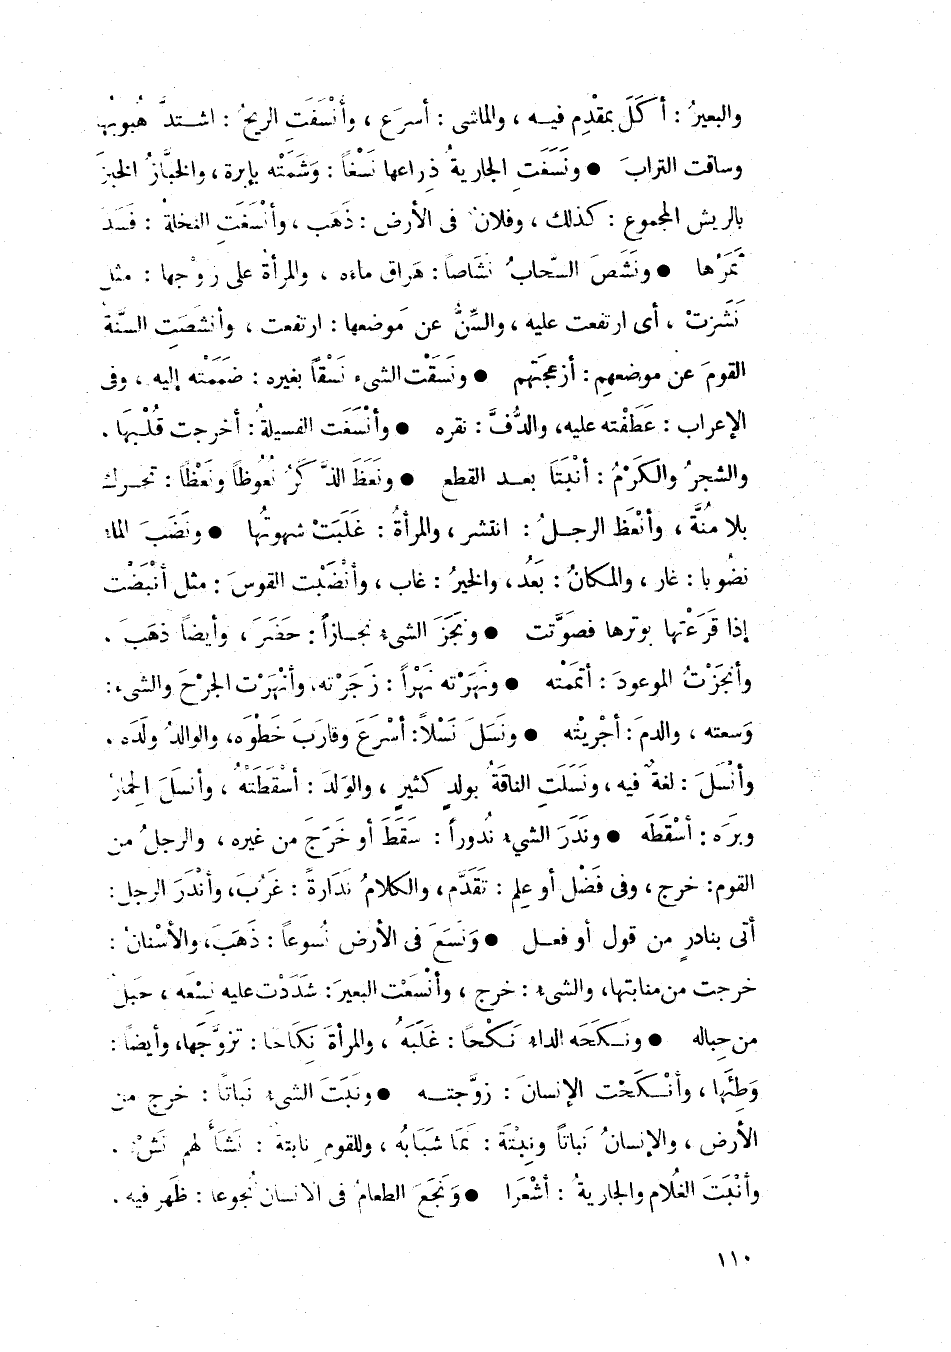 والبعيرُ : أكَلَ بمقْدِم فيـه ، والماشى : أسرَع ، وأنْسَفَتِ الريحُ : اشـتدَّ هُبوبُها
وساقت الترابَ ● ونَسَغَتِ الجاريةُ ذِراعها نَسْغاً : وَشَمَتْه بإبرة ، والخبَّازُ الخبزَ
بالريش المجموع : كذلك ، وفلانٌ فى الأرض : ذَهَب ، وأنْسَغَتِ النخلةُ : فَسَدَ
ثمَرُها ● ونَشَصَ السّحابُ نَشَاصاً : هَراق ماءه ، والمرأةُ على زوْجها : مثل
نَشَزتْ ، أى ارتفعت عليه ، والسِّنُّ عن مَوضعها : ارتفعت ، وأنشَصَتِ السَّنَةُ
القومَ عن موضعهِم : أزعجَتهم ● ونَسَقْت الشىء نَسْقاً بغيره : ضَمَمْته إليه ، وفى
الإعراب : عَطَفْته عليه، والدُّفَّ : نقره ● وأنْسَغَت الفسيلةُ : أخرجت قُلْبهَا .
والشجرُ والكَرْمُ : أنْبَتَا بعـد القطع ● ونَعَظَ الذَّ كَرُ نُعُوظاً ونَعْظاً : تحـرك
بلا مُنَّة ، وأنْعَظ الرجـلُ : انتشر ، والمرأةُ : غَلَبَتْ شهوتُها ● ونَضَبَ الماء
نضُوبا : غار ، والمكانُ : بَعُد، والخيرُ : غاب ، وأنْضَبْت القوسَ : مثل أنْبَضْت
إذا قَرَعْتها بوترها فصَوَّتت ● ونَجَزَ الشىء نجـازاً : حَضَرَ ، وأيضاً ذهَبَ .
وأنجَزْتُ الموعودَ : أتمَمْته ● ونهَرْته نَهْراً : زَجَرْته، وأنْهَرْت الجرْحَ والشىء :
وَسعته ، والدمَ : أجْريْته ● ونَسَلَ نَسْلاً: أسْرَعَ وقارَبَ خَطْوَه، والوالدُ ولَدَه .
وأنْسَلَ : لغةٌ فيه، ونَسَلَتِ الناقةُ بولدٍ كثيرٍ ، والوَلدَ : أسْقَطَتْهُ ، وأنسلَ الحِمارُ
وبرَه : أسْقَطَه ● ونَدَرَ الشىء نُدوراً : سَقَطَ أو خَرَجَ من غيره ، والرجلُ من
القوم: خرج، وفى فَضْل أو عِلم : تَقَدَّم، والكلامُ نَدَارةً : غَرُبَ، وأنْدَرَ الرجل :
أتى بنادرٍ من قول أو فعـل ● وَنَسَعَ فى الأرض نُسوعاً : ذهَبَ، والأسْنانُ :
خرجت من منابتها، والشىء : خرج ، وأنْسَعْت البعيرَ : شَدَدْت عليه نِسْعَه ، حبلٌ
من حِباله ● ونَـكَحَه الداء نَـكْحًا : غَلَبَهُ ، والمرأةَ نِكَاحا : تزوَّجَها، وأيضاً :
وَطِئَها ، وأنْـكَحْت الإنسانَ : زوَّجتـه ● ونَبَتَ الشىء نَباتًا : خرج من
الأرض ، والإنسانُ نَباتاً ونِبْتَة : نمَا شَبَابُه ، وللقوم نابتة : نَشَأ لهم نَشْء .
وأنْبَتَ الغُلام والجاريةُ : أشْعَرَا ● وَنَجَعَ الطعامُ فى الانسان نُجوعا : ظَهر فيه .
١١٠